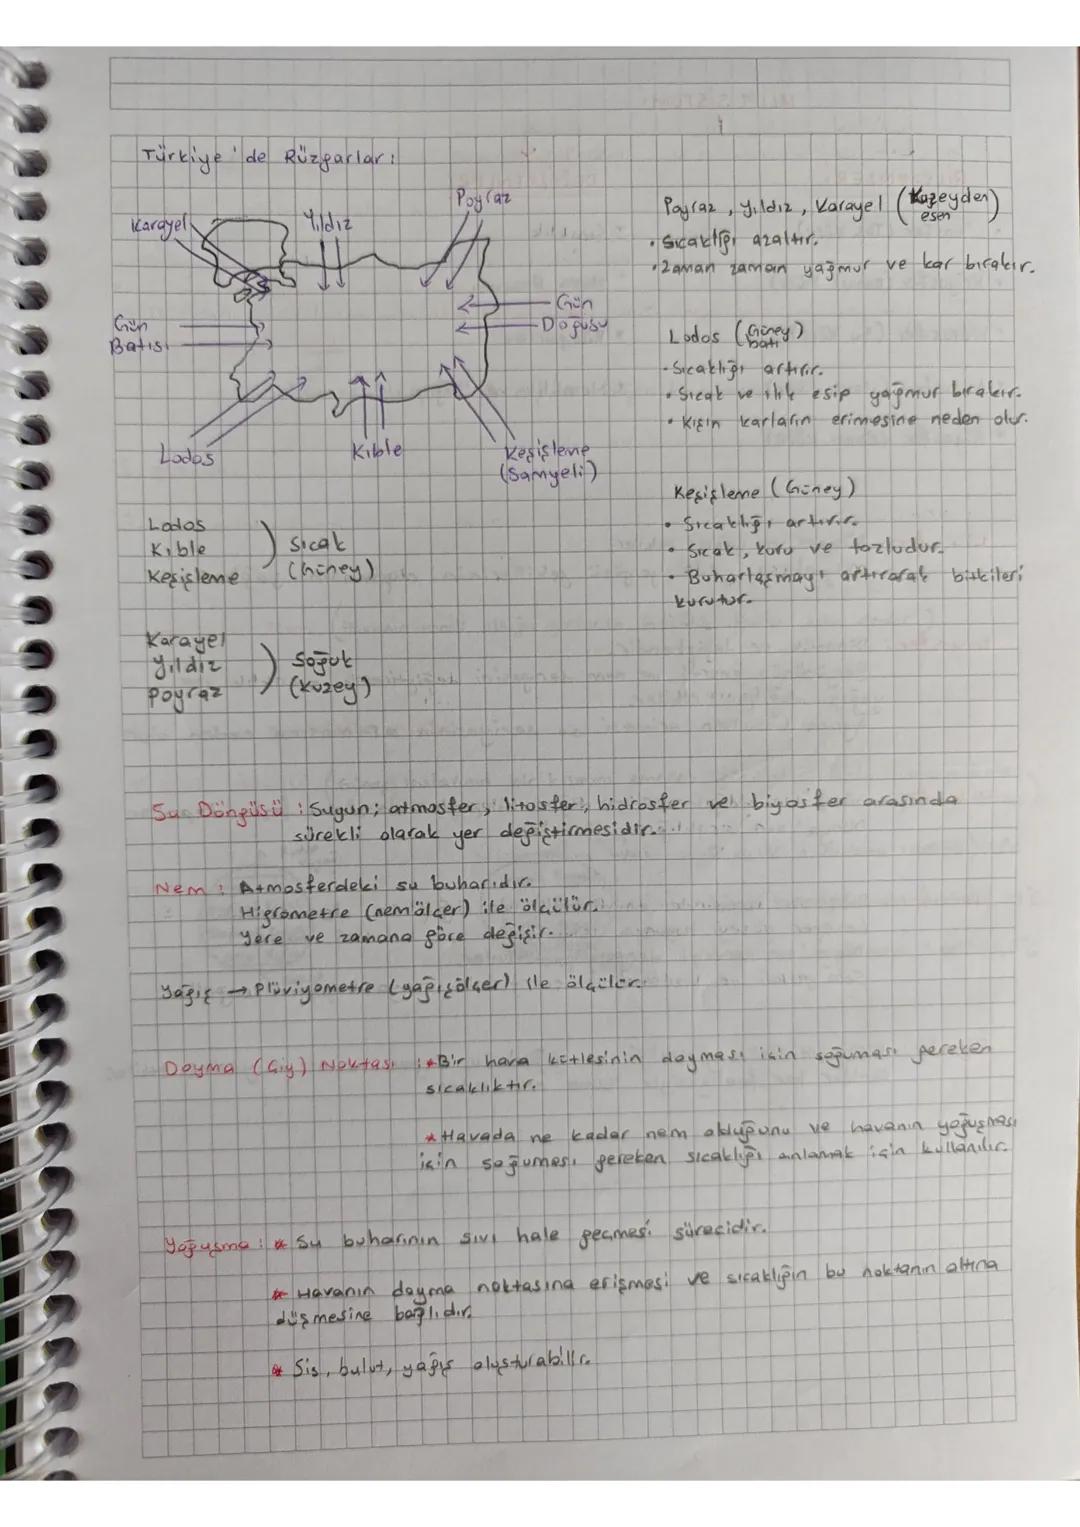 Türkiye'de Rüzgarlar:
Karayel
Yıldız
Poyraz
Gün
Batısı
Gün
Doğusu
Lodos
Kıble
Keşişleme
(Samyeli)
Lodos
Kıble
Keşişleme
Sıcak
(Güney)
Karayel
Yıldız
Poyraz
Soğuk
(Kuzey)
Poyraz, Yıldız, Karayel (Kuzeyden esen)
• Sıcaklığı azaltır.
• Zaman zaman yağmur ve kar bırakır.
Lodos (Güney batı)
• Sıcaklığı artırır.
• Sıcak ve ılık esip yağmur bırakır.
• Kışın karların erimesine neden olur.
Keşişleme (Güney)
• Sıcaklığı artırır.
• Sıcak, kuru ve tozludur.
• Buharlaşmayı artırarak bitkileri
kurutur.
Su Döngüsü : Suyun; atmosfer, litosfer, hidrosfer ve biyosfer arasında
sürekli olarak yer değiştirmesidir.
Nem : Atmosferdeki su buharıdır.
Higrometre (nemölçer) ile ölçülür.
Yere ve zamana göre değişir.
Yağış → Plüviyometre (yağışölçer) ile ölçülür.
Doyma (Çiy) Noktası : * Bir hava kütlesinin doyması için soğuması gereken
sıcaklıktır.
* Havada ne kadar nem olduğunu ve havanın yoğuşması
için soğuması gereken sıcaklığı anlamak için kullanılır.
Yoğuşma : * Su buharının sıvı hale geçmesi sürecidir.
* Havanın doyma noktasına erişmesi ve sıcaklığın bu noktanın altına
düşmesine bağlıdır.
* Sis, bulut, yağış oluşturabilir.